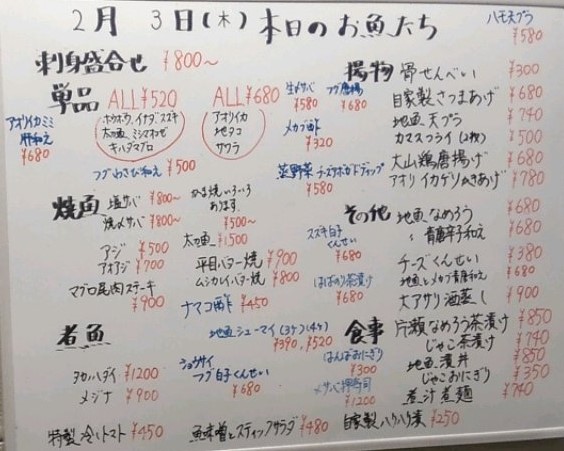 2月 3日(木) 本日のお魚たち
ハモ天プラ
¥580
刺身盛合せ ¥800〜
単品 ALL ¥520
ホウボウ、イナダ、スズキ
太刀魚、ミシマオコゼ
キハダマグロ
ALL ¥680
アオリイカ
地タコ
サワラ
生〆サバ
¥580
フグ唐揚
¥680
アオリイカミミ
肝和え
¥680
メカブ酢
¥320
フグわさび和え ¥500
葉野菜チーズアボカドディップ
¥580
焼魚 塩サバ ¥800〜
焼〆サバ ¥800〜
かま焼いろいろ
あります
¥500〜
アジ ¥500
アオアジ ¥700
マグロ尾肉ステーキ
¥900
太刀魚 ¥1500
平目バター焼 ¥900
ムシカレイバター焼 ¥800
ナマコ酢 ¥450
スズキ白子
くんせい
¥680
はばのり茶漬け
¥680
地魚シューマイ(3ケ)(4ケ)
¥390, ¥520
煮魚
タカノハダイ ¥1200
メジナ ¥900
ショウサイ
フグ白子くんせい
¥680
特製 冷しトマト ¥450
魚味噌とスティックサラダ ¥480
揚物 骨せんべい ¥300
自家製さつまあげ ¥680
地魚 天プラ ¥740
カマスフライ(2枚) ¥500
大山鶏唐揚げ ¥680
アオリイカゲソかきあげ ¥780
その他 地魚なめろう ¥680
〃 青唐辛子和え ¥680
チーズくんせい ¥380
地魚とメカブ青唐和え ¥680
大アサリ酒蒸し ¥900
食事 片瀬なめろう茶漬け ¥850
じゃこ茶漬け ¥740
地魚漬丼 ¥850
じゃこおにぎり ¥350
煮汁煮麺 ¥740
はんばおにぎり
¥300
〆サバ押寿司
¥1200
自家製ハリハリ漬 ¥250